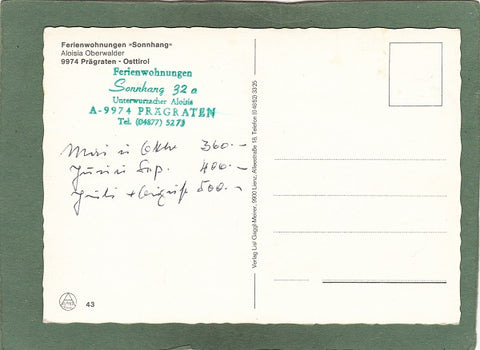 Ferienwohnungen »Sonnhang«
Aloisia Oberwalder
9974 Prägraten - Osttirol
Ferienwohnungen
Sonnhang 32 a
Unterwurzacher Aloisia
A-9974 PRÄGRATEN
Tel. (04877) 5273
Mai u Oktbr 360.-
Juni u Sep. 400.-
Juli + August 500.-
Verlag Lisl Gaggl-Meirer, 9900 Lienz, Alleestraße 18, Telefon (0 48 52) 3235
43